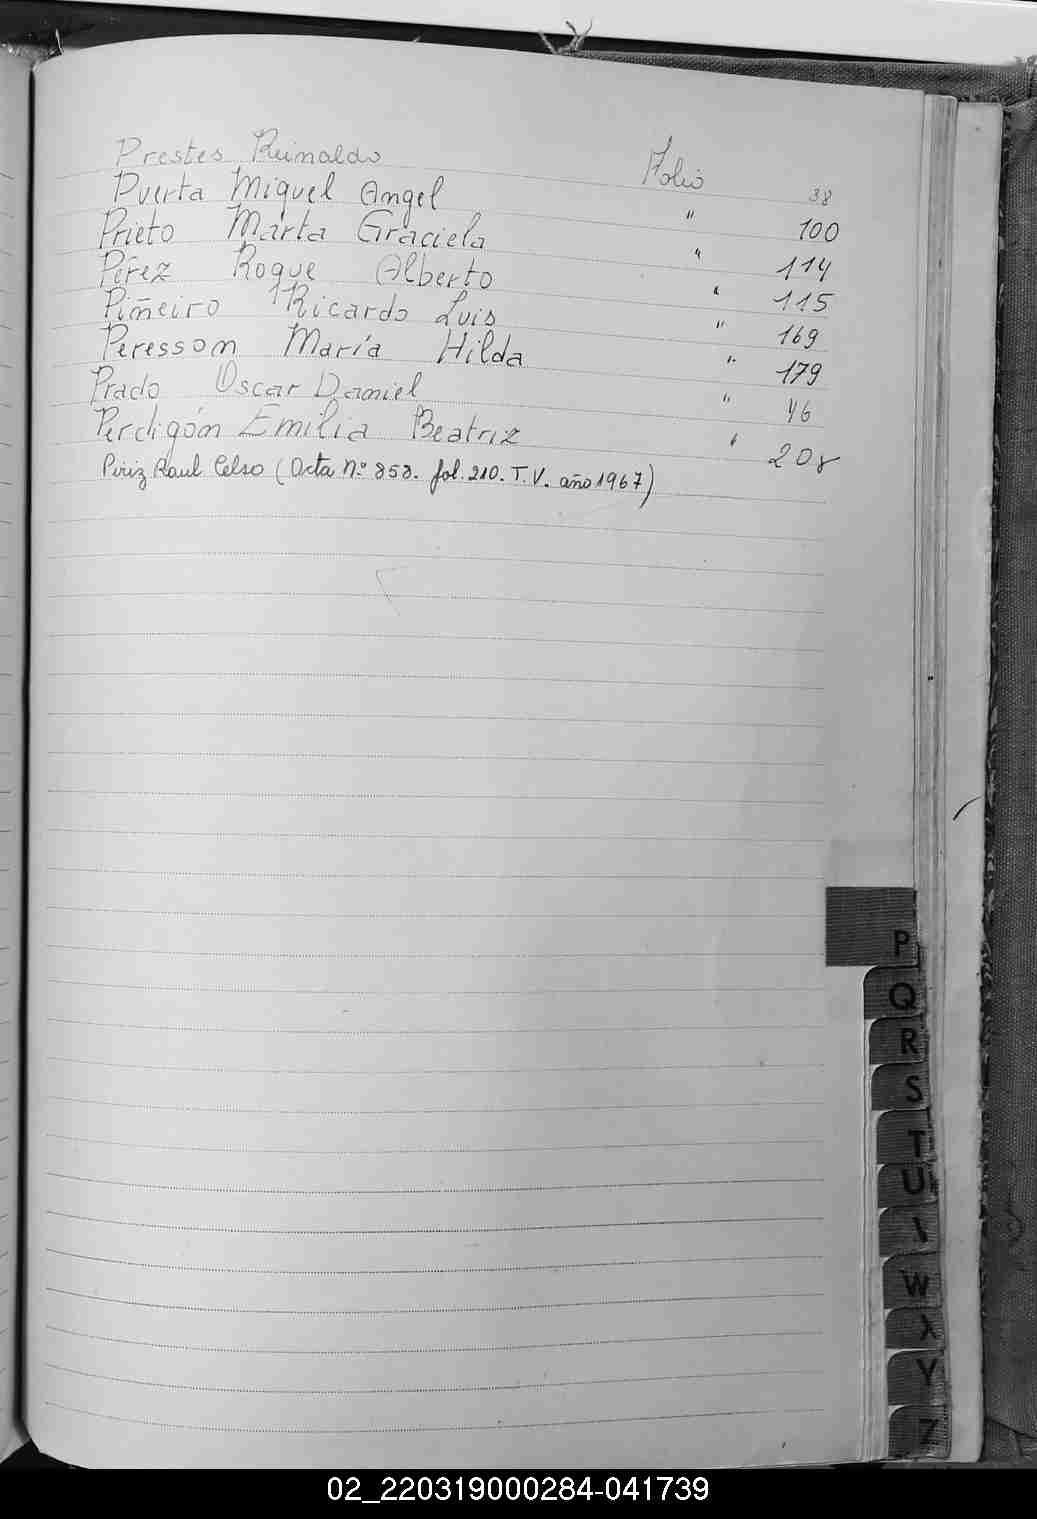 Prestes Reinaldo Folio 38
Puerta Miguel Angel " 100
Prieto Marta Graciela " 114
Pérez Roque Alberto " 115
Piñeiro Ricardo Luis " 169
Peresson María Hilda " 179
Prado Oscar Daniel " 46
Perdigón Emilia Beatriz " 208
Piriz Raul Celso (Acta Nº 858. fol. 210. T. V. año 1967)
P
Q
R
S
T
U
W
X
Y
Z
02_220319000284-041739